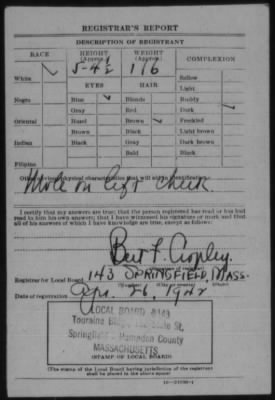 REGISTRAR'S REPORT
DESCRIPTION OF REGISTRANT
RACE HEIGHT (Approx.) WEIGHT (Approx.) COMPLEXION
5-4½ 116
White ✓ Sallow
EYES HAIR Light
Negro Blue ✓ Blonde Ruddy
Gray Red Dark ✓
Oriental Hazel Brown ✓ Freckled
Brown Black Light brown
Indian Black Gray Dark brown
Bald Black
Filipino
Other obvious physical characteristics that will aid in identification
Mole on left cheek.
I certify that my answers are true; that the person registered has read or has had
read to him his own answers; that I have witnessed his signature or mark and that
all of his answers of which I have knowledge are true, except as follows:
Bert F. Copley
Registrar for Local Board 143 SPRINGFIELD, MASS.
(Number) (City or county) (State)
Date of registration Apr. 26, 1942
LOCAL BOARD #143
Touraine State St,
Springfield - Hampden County
MASSACHUSETTS
(STAMP OF LOCAL BOARD)
(The stamp of the Local Board having jurisdiction of the registrant
shall be placed in the above space)